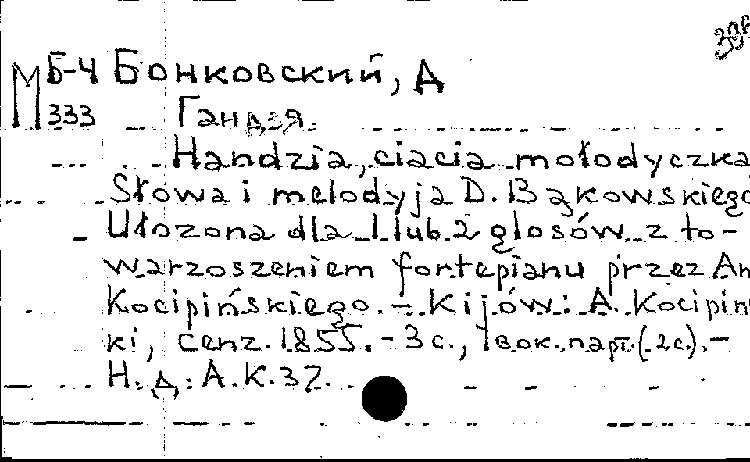 Б-4 Бонковский, Д
М 333 Гандзя.
Handzia, ciacia mołodyczka
Słowa i melodyja D. Bąkowskiego
Ułozona dla 1 lub 2 głosów z to-
warzoszeniem fortepianu przez An
Kocipińskiego. - Kijów: A. Kocipin
ki, cenz. 1855. - 3 с., 1 вок. парт. (2 с.). -
Н. д: А.К.37.